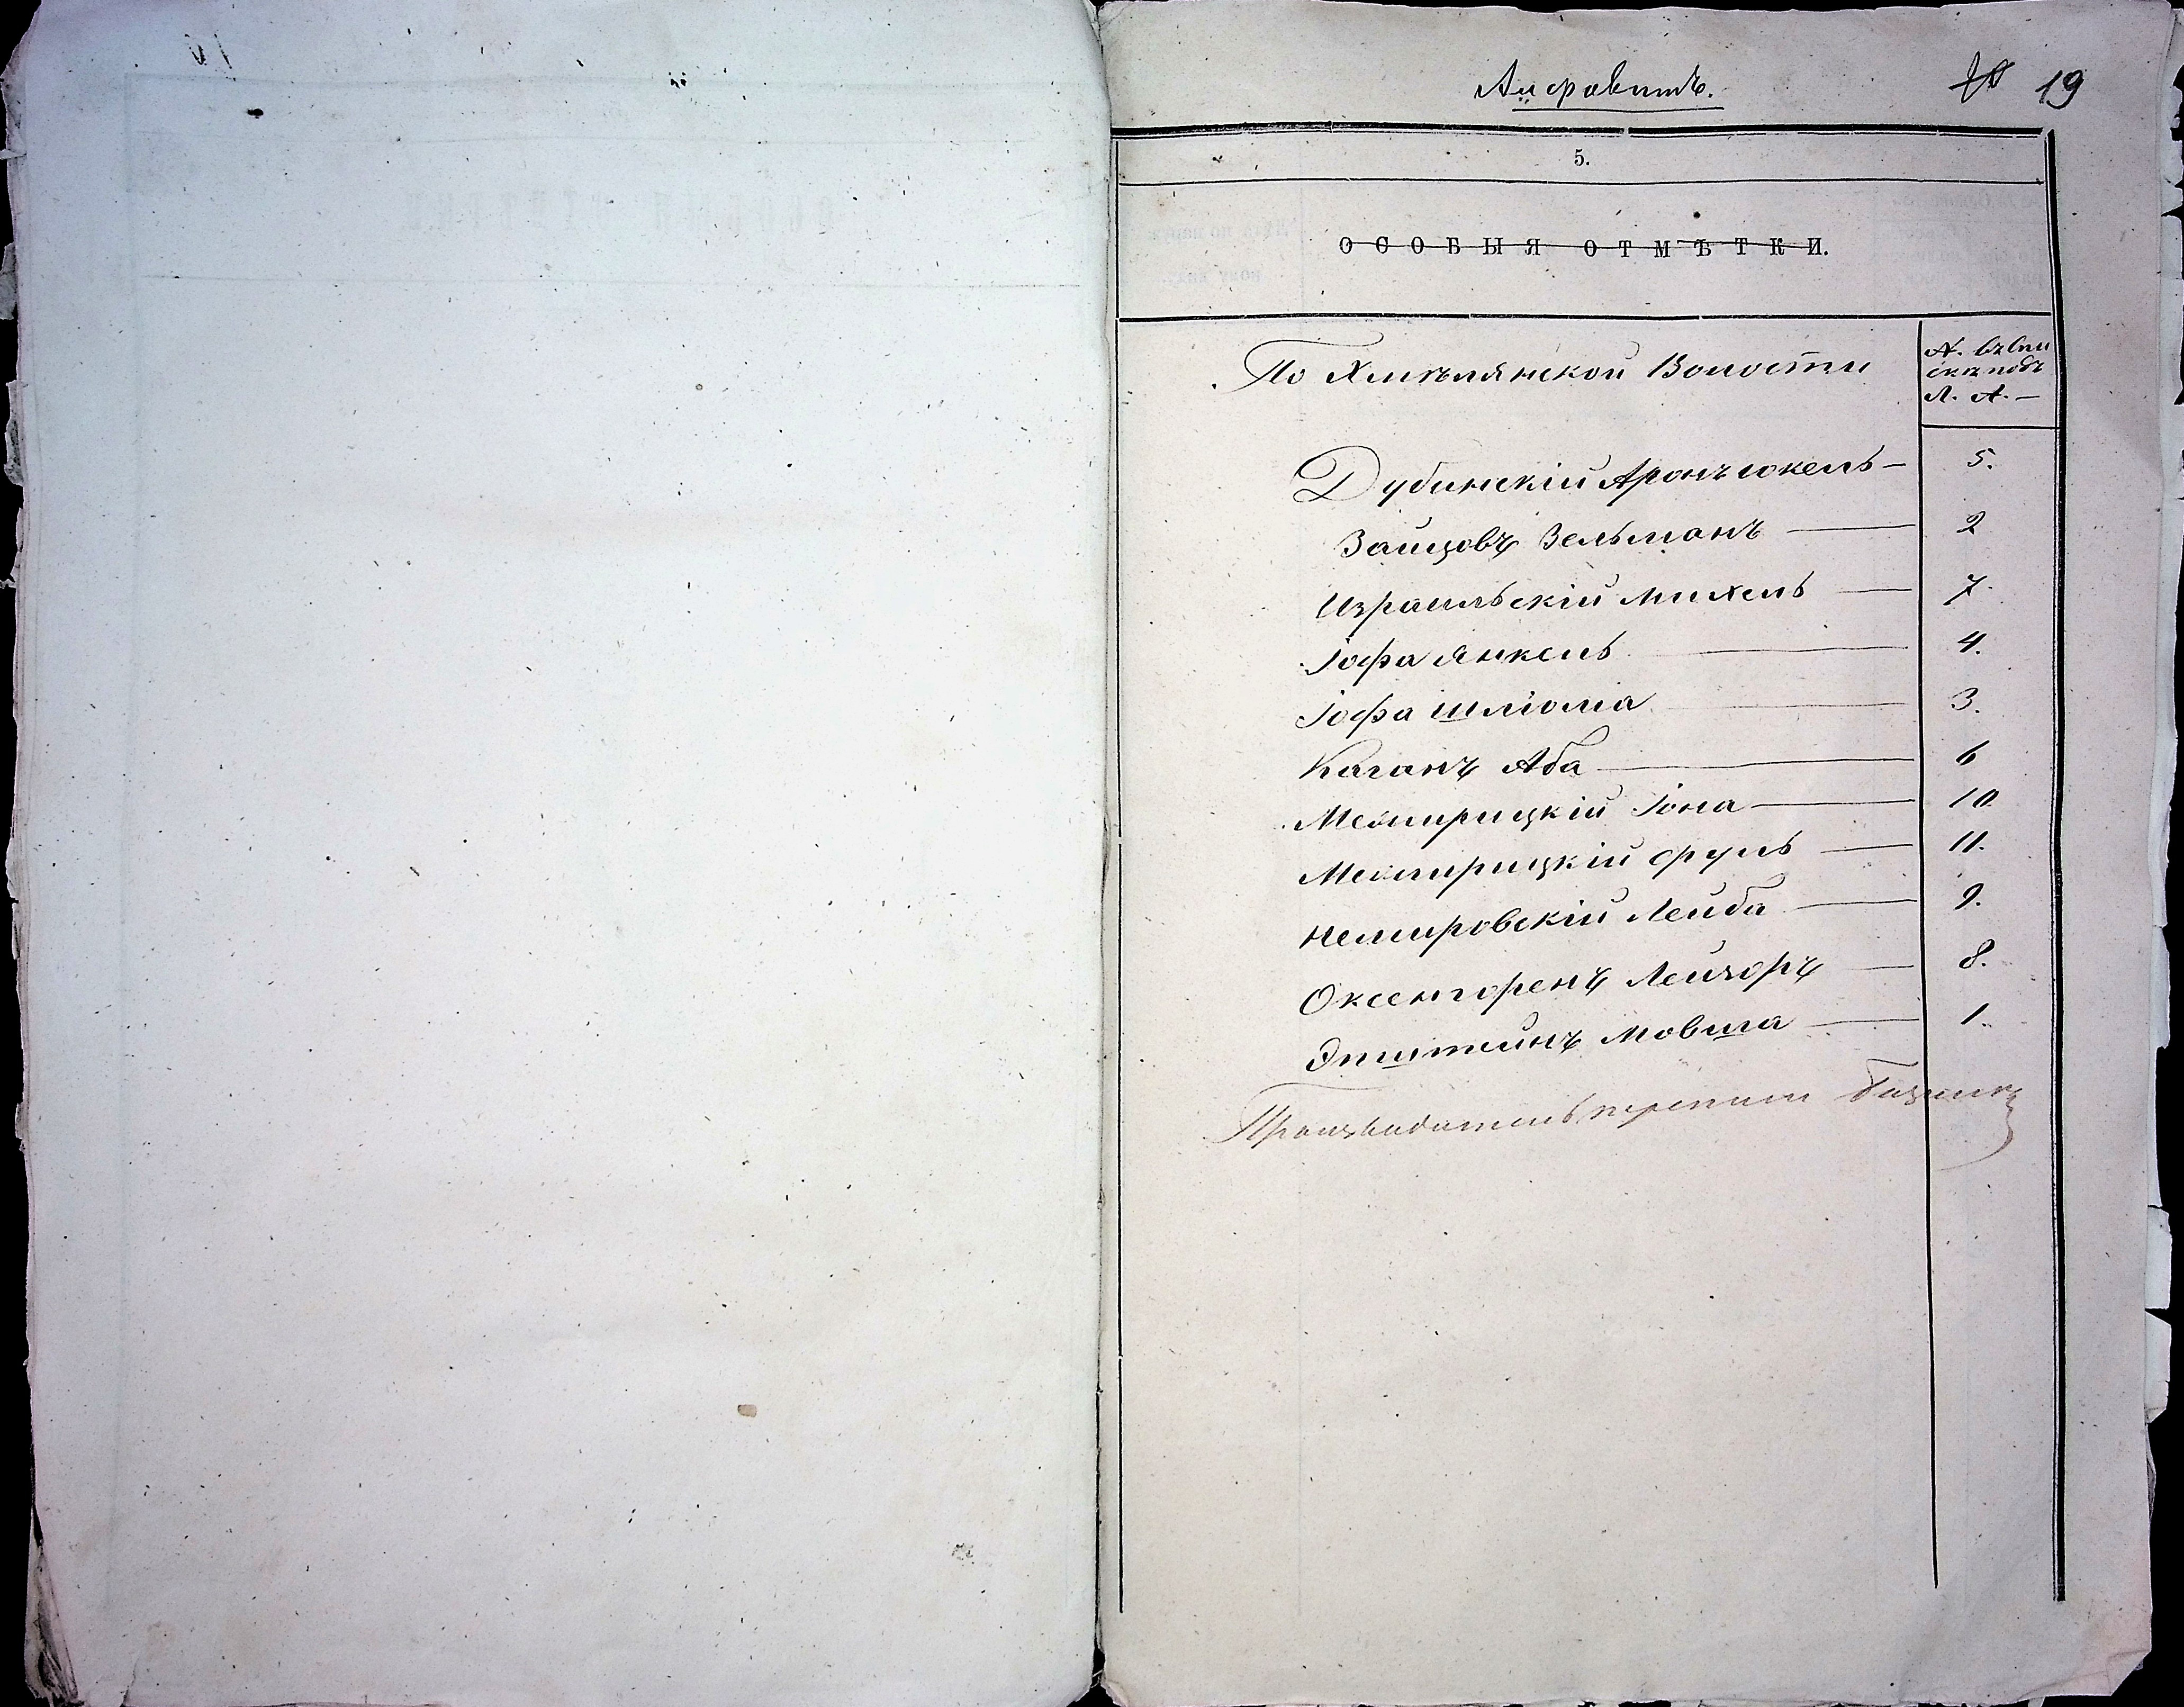 Алфавитъ.
19
5.
ОСОБЫЯ ОТМѢТКИ.
По Хмѣлянской Волости
№. въ спи
скѣ подъ
Л. А. —
Дубинскій Аронъ Іокель — 5.
Зайцовъ Зельманъ — 2
Израильскій Михель — 7.
Іофа Янкель — 4.
Іофа Шліома — 3.
Каганъ Аба — 6
Межирицкій Іона — 10
Межирицкій Сруль — 11.
Немировскій Лейба — 9.
Оксенгоренъ Лейзоръ — 8.
Эпштейнъ Мовша — 1.
Производитель переписи